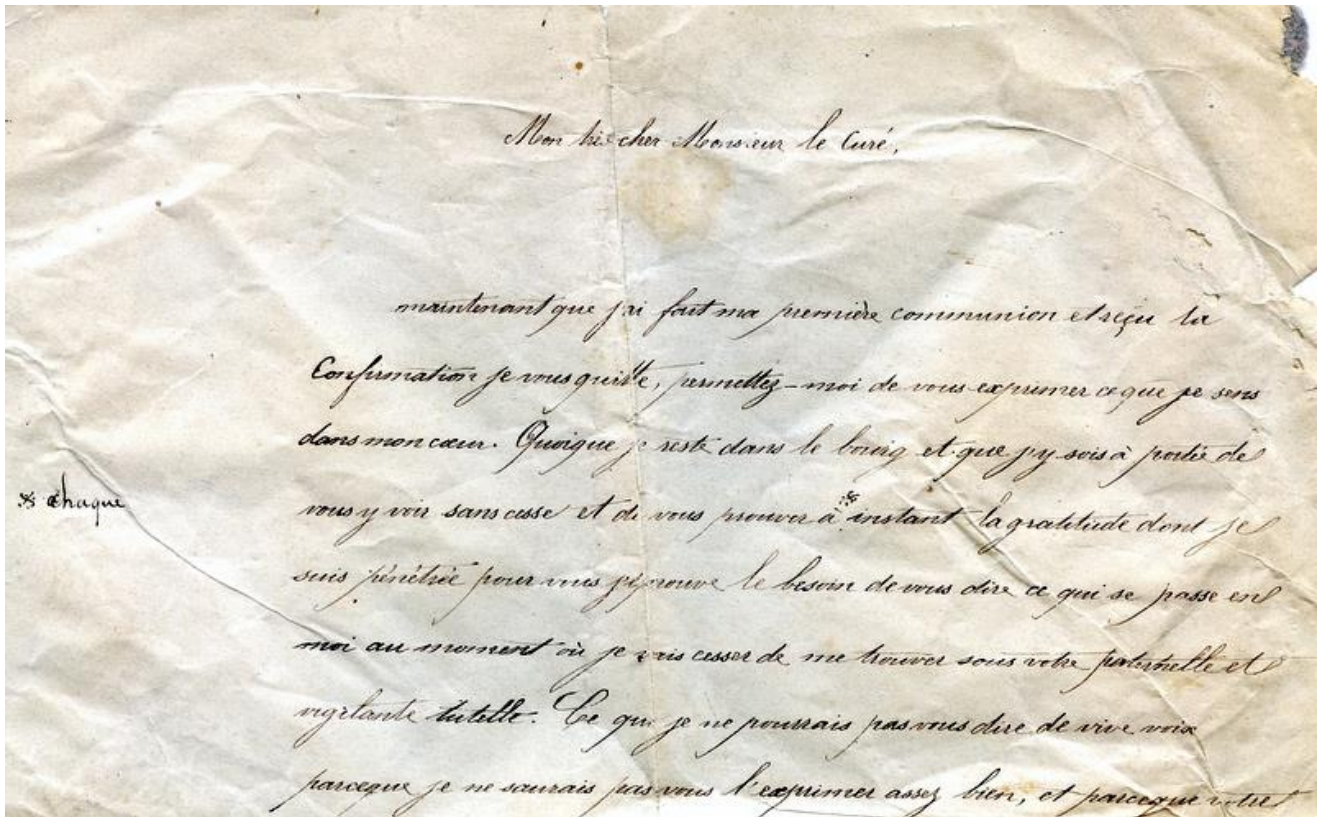 Mon très cher Monsieur le Curé,
maintenant que j'ai fait ma première communion et reçu la
Confirmation je vous quitte, permettez-moi de vous exprimer ce que je sens
dans mon cœur. Quoique je reste dans le bourg et que j'y sois à portée de
vous y voir sans cesse et de vous prouver à ※ instant la gratitude dont je
※ chaque
suis pénétrée pour vous j'éprouve le besoin de vous dire ce qui se passe en
moi au moment où je vais cesser de me trouver sous votre paternelle et
vigilante tutelle. Ce que je ne pourrais pas vous dire de vive voix
parceque je ne saurais pas vous l'exprimer assez bien, et parceque votre